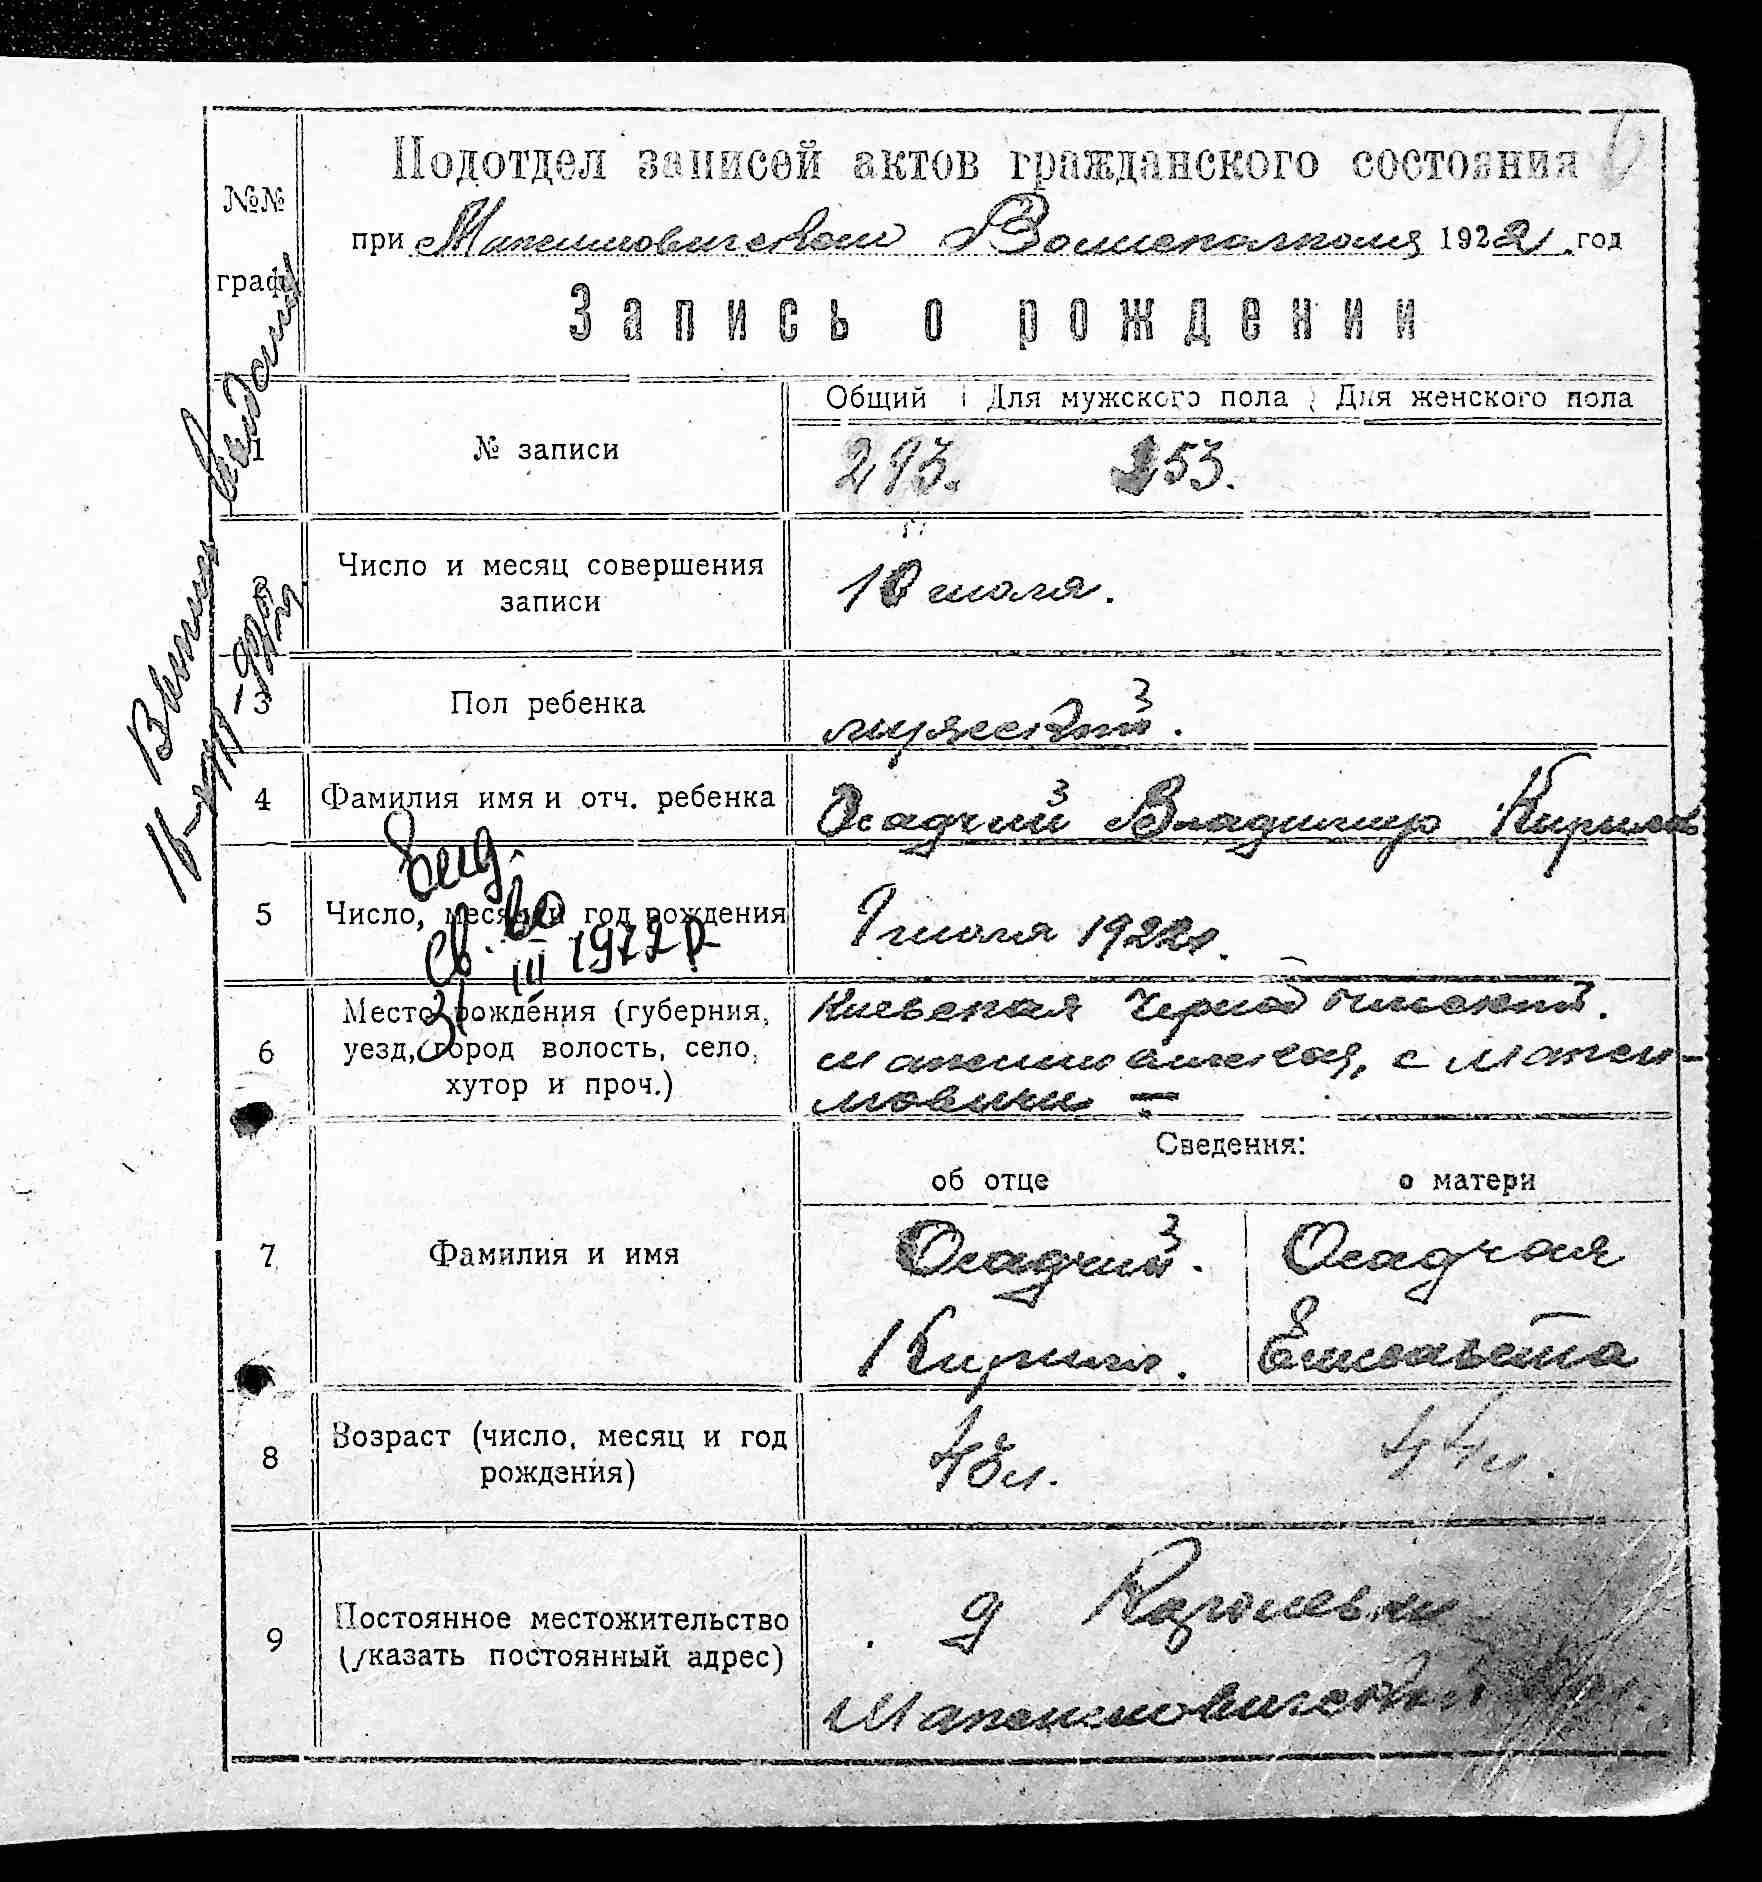 №№
граф
Подотдел записей актов гражданского состояния
при Максимовическом Волисполкоме 1922 год
Запись о рождении
1 № записи
Общий Для мужского пола Для женского пола
293. 153.
Число и месяц совершения записи
10 июля.
3 Пол ребенка
мужеский.
4 Фамилия имя и отч. ребенка
Осадчий Владимир Кирилов
5 Число, месяц и год рождения
июля 1922г.
Вид. св. во
31 III 1972 р
6 Место рождения (губерния,
уезд, город волость, село,
хутор и проч.)
Киевская Чернобыльский.
Максимовичская, с Макси-
мовичи
Сведения:
об отце о матери
7 Фамилия и имя
Осадчий. Осадчая
Кирилл. Елисавета
8 Возраст (число, месяц и год
рождения)
48л. 44л.
9 Постоянное местожительство
(указать постоянный адрес)
д
Витяг видано